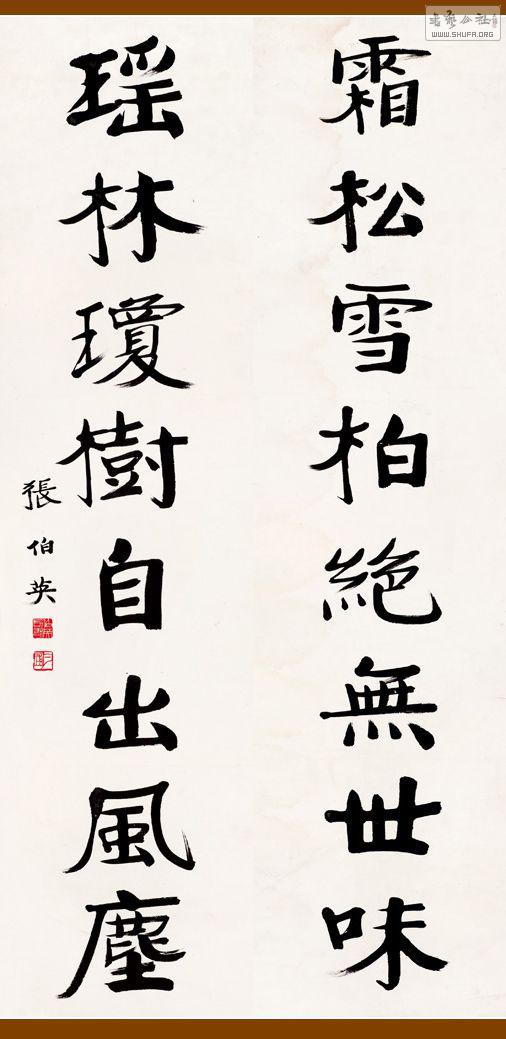 霜松雪柏絶無世味
瑶林瓊樹自出風塵
張伯英
書藝公社
WWW.SHUFA.ORG